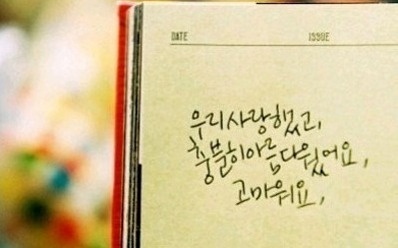 DATE ISSUE
우리사랑했고,
충분히아름다웠어요,
고마워요,